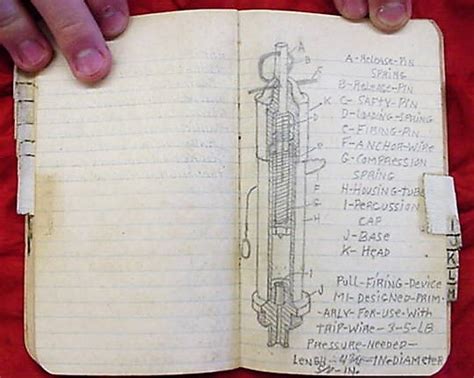 A-Release-Pin
Spring
B-Release-Pin
C-Safty-Pin
D-Loading-Spring
E-Firing-Pin
F-Anchor-Wire
G-Compression
Spring
H-Housing-Tube
I-Percussion
Cap
J-Base
K-Head
Pull-Firing-Device
M1-Designed-Prim-
arly-For-Use-With
Trip-Wire-3-5-LB
Pressure-Needed-
Lengh-
-IN-Diameter
-IN.
A
B
C
K
F
G
H
J
I
J
K
L
M